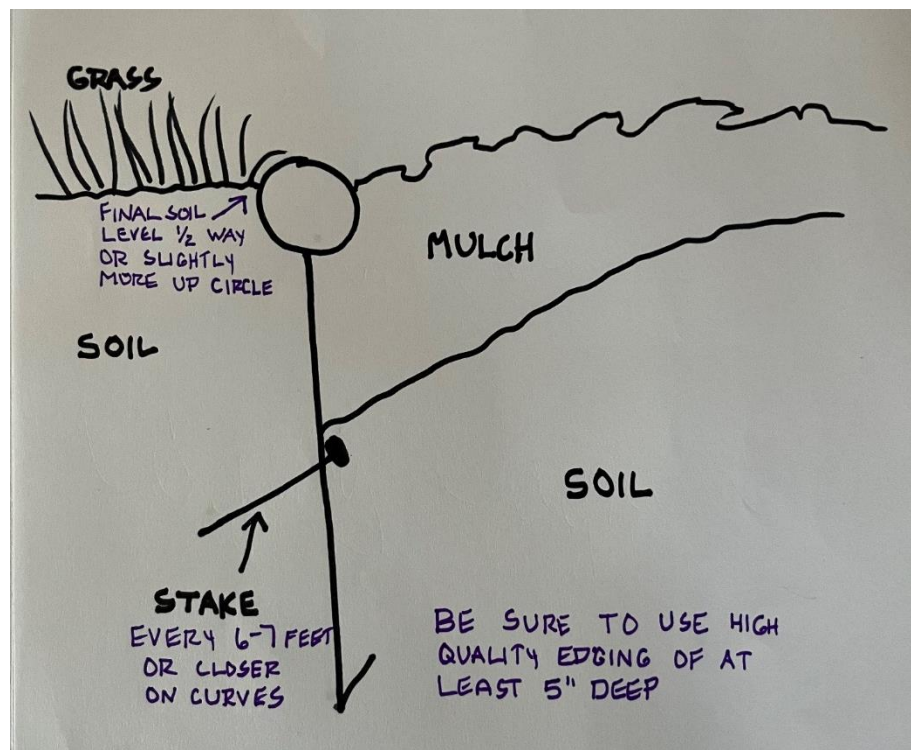 GRASS
FINAL SOIL
LEVEL 1/2 WAY
OR SLIGHTLY
MORE UP CIRCLE
MULCH
SOIL
SOIL
STAKE
EVERY 6-7 FEET
OR CLOSER
ON CURVES
BE SURE TO USE HIGH
QUALITY EDGING OF AT
LEAST 5" DEEP